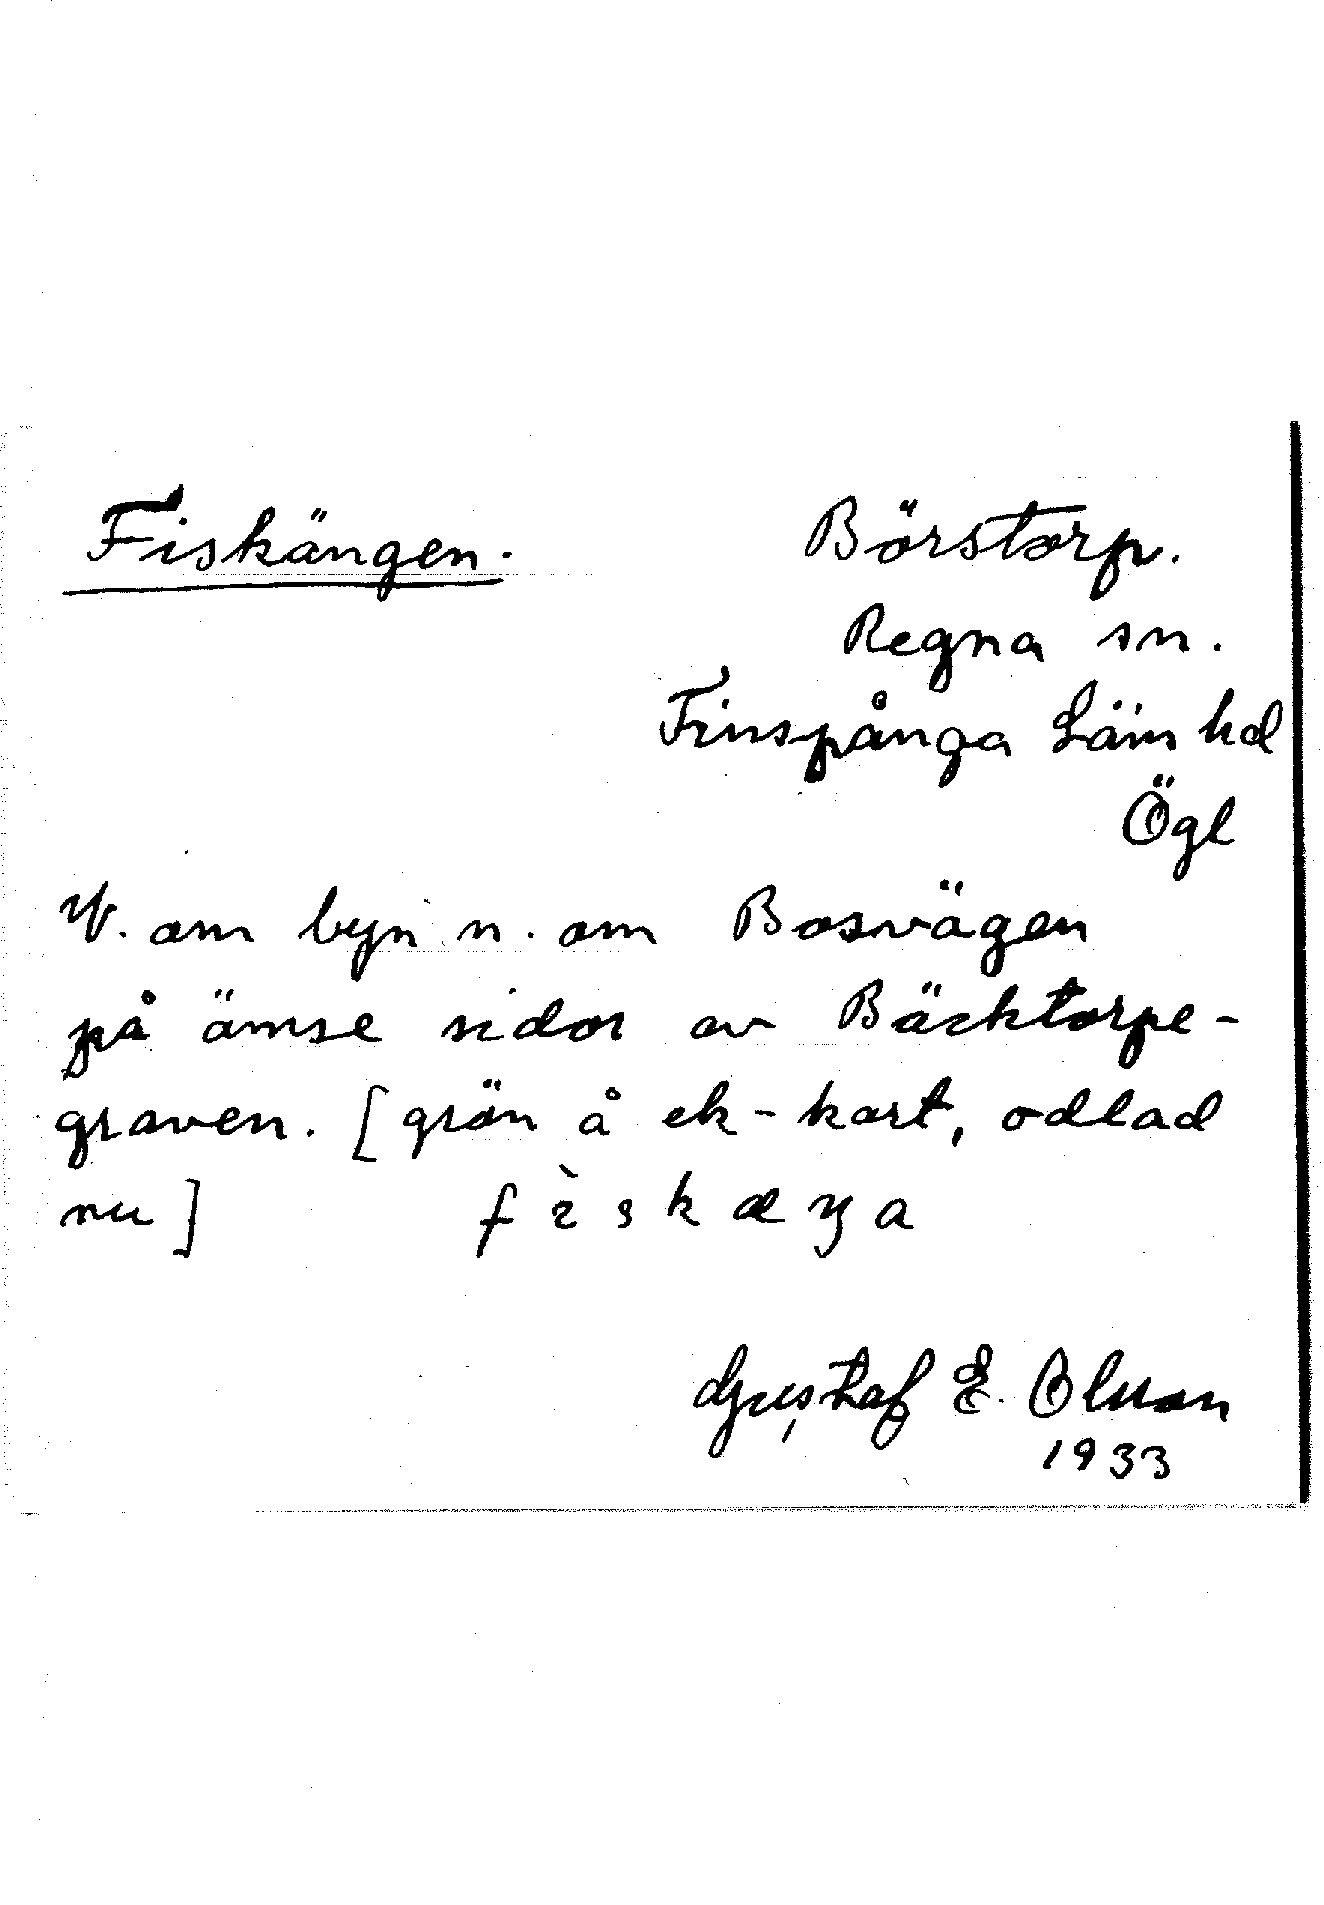 Fiskängen.
Börstorp.
Regna sn.
Finspånga Läns hd
Ögl
V. om byn n. om Bosvägen
på ömse sidor av Bäcktorpe-
graven. [grön å ek-kart, odlad
nu] fìskæŋa
Gustaf E. Olsson
1933